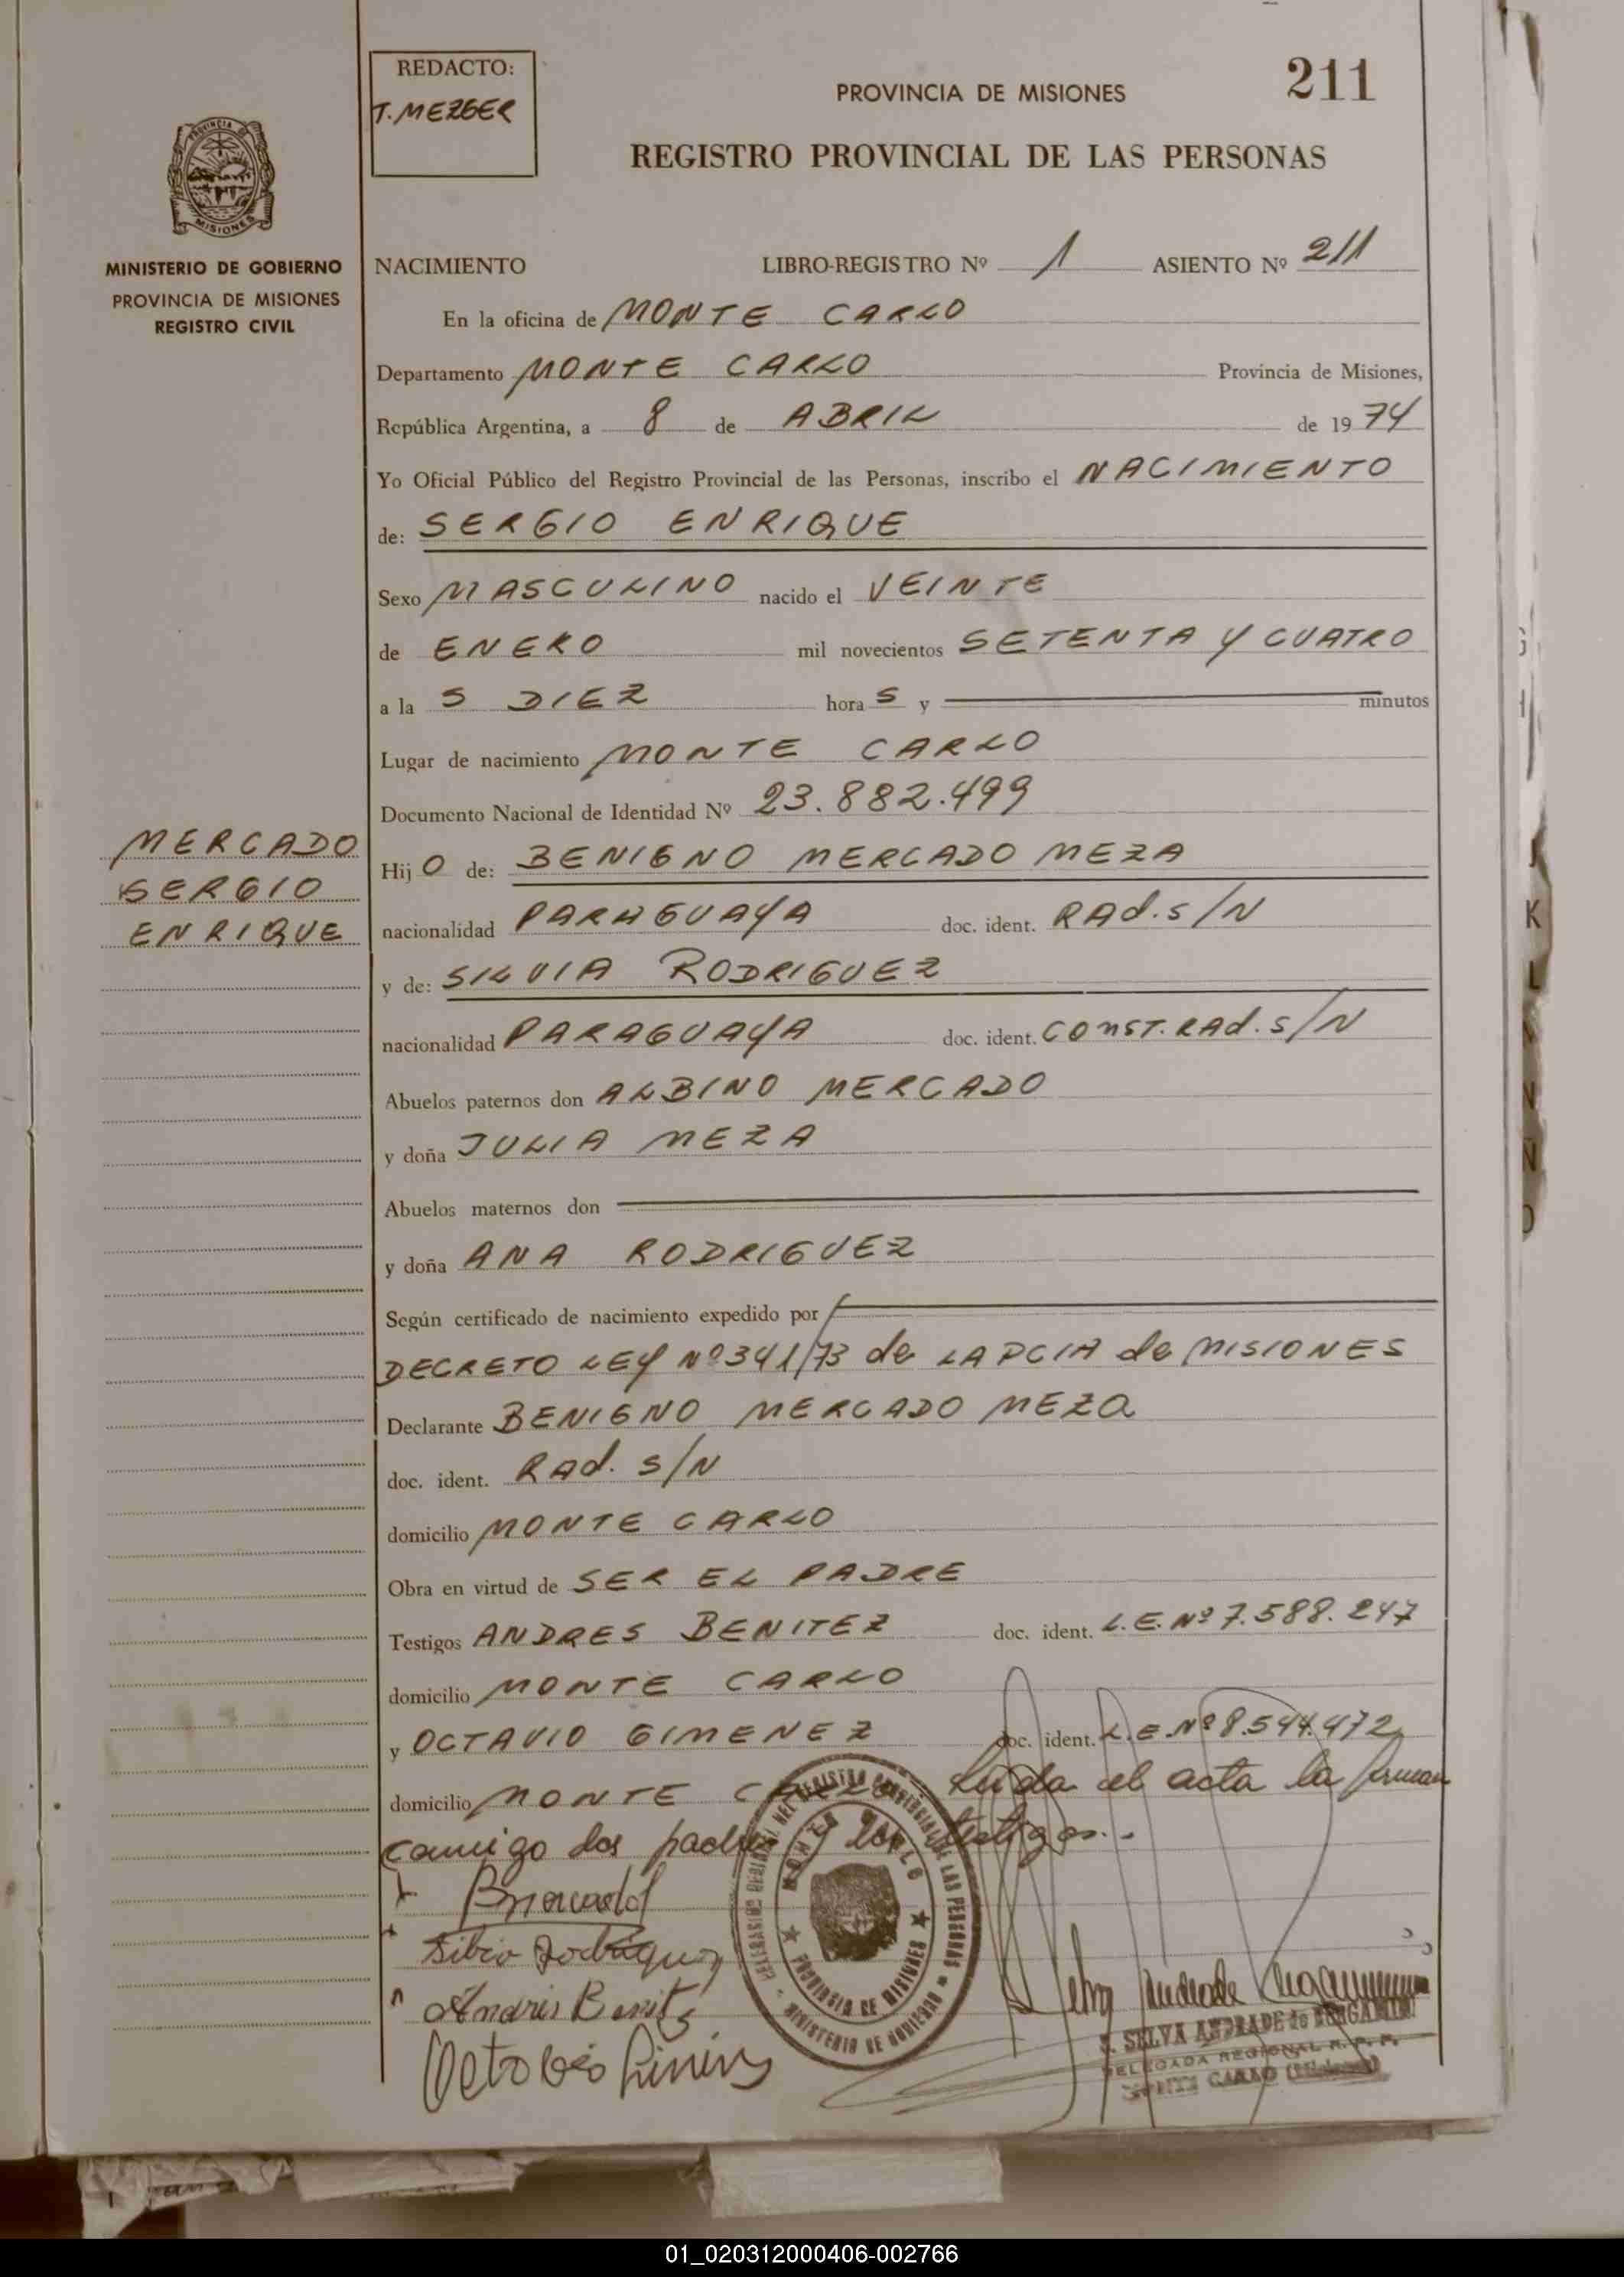 REDACTO:
T. MEZGER
PROVINCIA DE MISIONES
211
REGISTRO PROVINCIAL DE LAS PERSONAS
PROVINCIA DE
MISIONES
MINISTERIO DE GOBIERNO
PROVINCIA DE MISIONES
REGISTRO CIVIL
NACIMIENTO LIBRO-REGISTRO Nº 1 ASIENTO Nº 211
En la oficina de MONTE CARLO
Departamento MONTE CARLO Provincia de Misiones,
República Argentina, a 8 de ABRIL de 1974
Yo Oficial Público del Registro Provincial de las Personas, inscribo el NACIMIENTO
de: SERGIO ENRIQUE
Sexo MASCULINO nacido el VEINTE
de ENERO mil novecientos SETENTA Y CUATRO
a la S DIEZ hora S y minutos
Lugar de nacimiento MONTE CARLO
Documento Nacional de Identidad Nº 23.882.499
MERCADO
SERGIO
ENRIQUE
Hij O de: BENIGNO MERCADO MEZA
nacionalidad PARAGUAYA doc. ident. RAd. S/N
y de: SILVIA RODRIGUEZ
nacionalidad PARAGUAYA doc. ident. CONST. RAd. S/N
Abuelos paternos don ALBINO MERCADO
y doña JULIA MEZA
Abuelos maternos don
y doña ANA RODRIGUEZ
Según certificado de nacimiento expedido por
DECRETO LEY Nº 341/73 de LA PCIA de MISIONES
Declarante BENIGNO MERCADO MEZA
doc. ident. RAd. S/N
domicilio MONTE CARLO
Obra en virtud de SER EL PADRE
Testigos ANDRES BENITEZ doc. ident. L.E. Nº 7.588.247
domicilio MONTE CARLO
y OCTAVIO GIMENEZ doc. ident. L.E. Nº 8.544.472
domicilio MONTE CARLO Leida el acta la firman
conmigo los padres y los testigos.-
BMercado
Silvia Rodriguez
Andres Benitez
Octavio Gimenez
MONTE CARLO
PROVINCIA DE MISIONES
MINISTERIO DE GOBIERNO
S. SELVA ANDRADE de BERGAMINI
DELEGADA REGIONAL R. P. P.
MONTE CARLO (Misiones)
K
L
N
Ñ
O
01_020312000406-002766